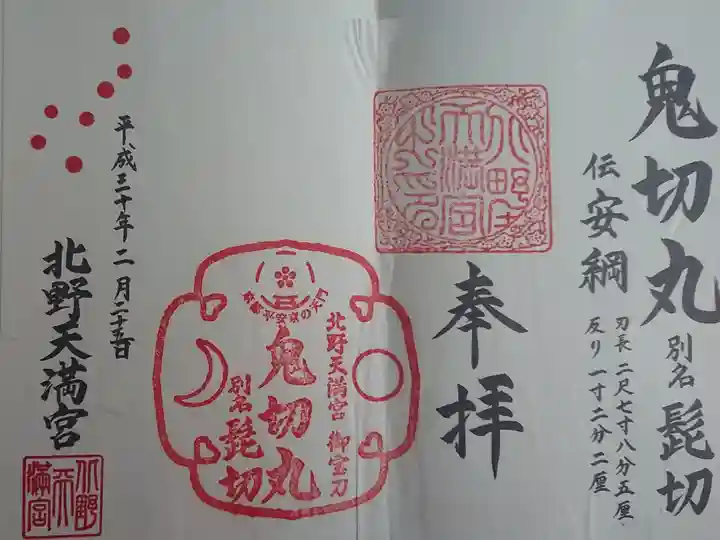 鬼切丸 別名 髭切
伝 安綱
刃長 二尺七寸八分五厘
反り 一寸二分二厘
奉拝
北野天満宮 御宝刀
鬼切丸
別名 髭切
平安京の天門
平成三十年二月二十五日
北野天満宮
北野
天
満宮